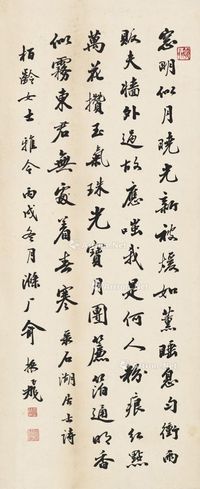 窓明似月曉光新被煖如薰睡息匀衝雨
販夫墻外過故應嗤我是何人粉痕紅點
萬花攢玉氣珠光寶月團簾箔通明香
似霧東君無處着春寒 石湖居士詩
柏齡女士雅令丙戌冬月滌厂俞振飛